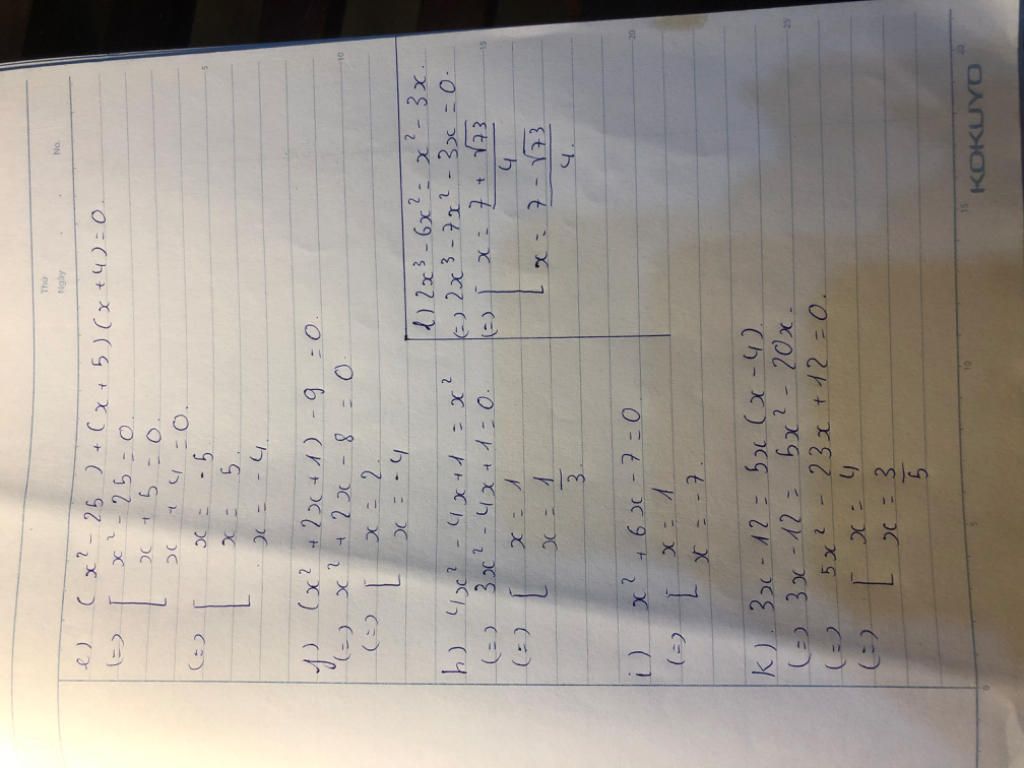 Thứ
Ngày
No.
e) (x² - 25) + (x + 5)(x + 4) = 0.
(=) [ x² - 25 = 0.
x + 5 = 0.
x + 4 = 0.
(=) [ x = -5.
x = 5.
x = -4.
f) (x² + 2x + 1) - 9 = 0.
(=) x² + 2x - 8 = 0.
(=) [ x = 2.
x = -4
h) 4x² - 4x + 1 = x²
(=) 3x² - 4x + 1 = 0.
(=) [ x = 1
x = 1/3.
i) x² + 6x - 7 = 0
(=) [ x = 1
x = -7.
k) 3x - 12 = 5x(x - 4)
(=) 3x - 12 = 5x² - 20x.
(=) 5x² - 23x + 12 = 0.
(=) [ x = 4
x = 3/5
l) 2x³ - 6x² = x² - 3x.
(=) 2x³ - 7x² - 3x = 0.
(=) [ x = 7 + √73/4
x = 7 - √73/4.
5
10
15
20
25
0
5
10
15
20
KOKUYO